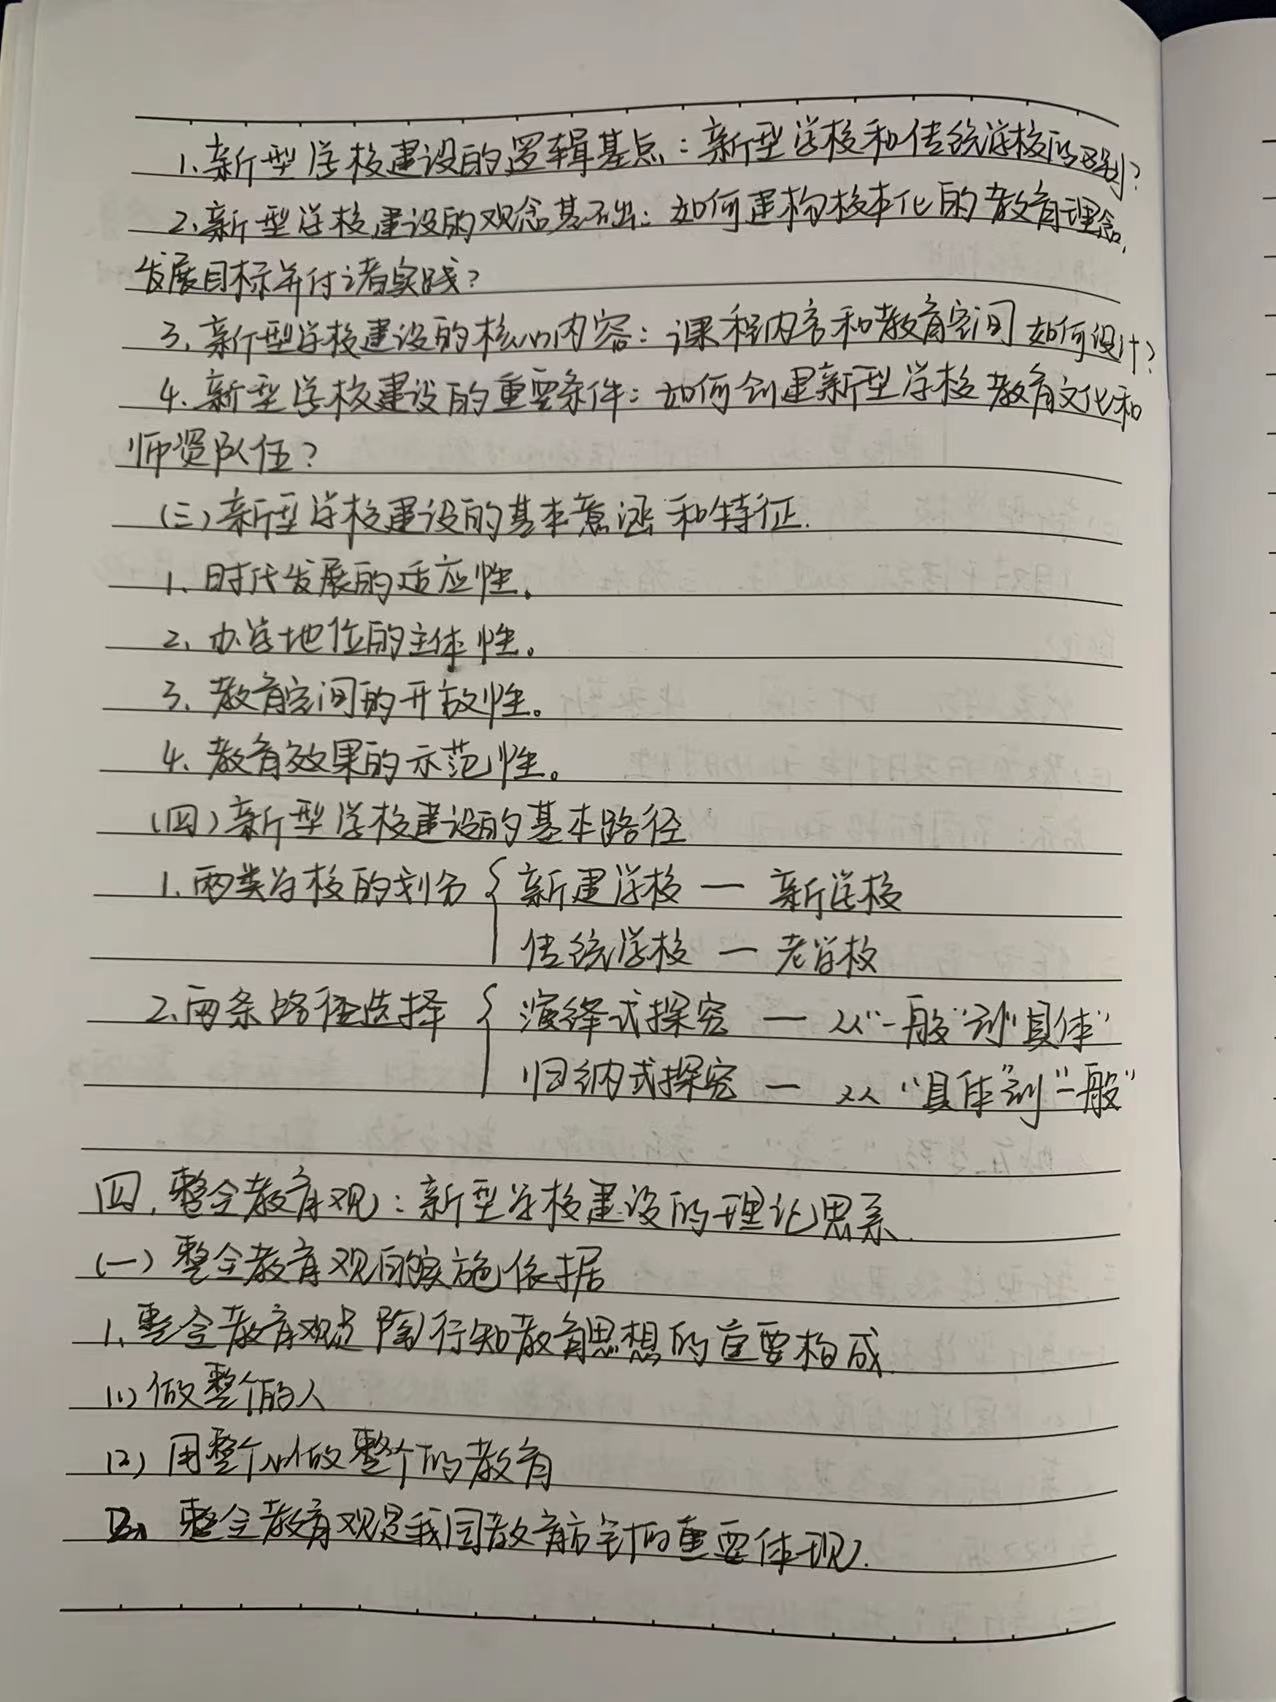 1.新型学校建设的逻辑基点：新型学校和传统学校的区别？
2.新型学校建设的观念基础：如何建构校本化的教育理念，
发展目标并付诸实践？
3.新型学校建设的核心内容：课程内容和教育空间如何设计？
4.新型学校建设的重要条件：如何创建新型学校教育文化和
师资队伍？
(三)新型学校建设的基本意涵和特征.
1.时代发展的适应性.
2.办学地位的主体性。
3.教育空间的开放性。
4.教育效果的示范性。
(四)新型学校建设的基本路径
1.两类学校的划分 { 新建学校 — 新学校
传统学校 — 老学校
2.两条路径选择 { 演绎式探究 — 从“一般”到“具体”
归纳式探究 — 从“具体”到“一般”
四.整全教育观：新型学校建设的理论思系.
(一)整全教育观的实施依据
1.整全教育观是陶行知教育思想的重要构成.
(1)做整个的人
(2)用整个心做整个的教育
整全教育观是我国教育方针的重要体现.